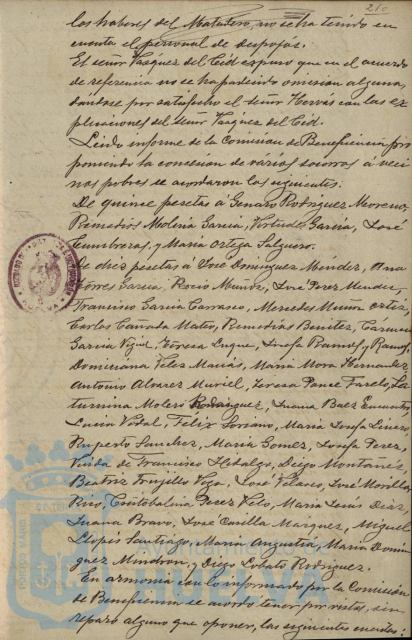 210
los haberes del Matadero, no se ha tenido en
cuenta el personal de despojos.
El señor Vazquez del Cid expuso que en el acuerdo
de referencia no se ha padecido omision alguna,
dandose por satisfecho el señor Hervás con las ex
plicaciones del señor Vazquez del Cid.
Leido informe de la Comision de Beneficencia pro
poniendo la concesion de varios socorros á veci
nos pobres se acordaron los siguientes.
De quince pesetas á Genaro Rodriguez Moreno,
Remedios Molina Garcia, Virtudes Garcia, José
Cumbreras, y Maria Ortega Salguero.
De diez pesetas á José Dominguez Mendez, Ana
Torres Garcia, Rocio Muñoz, José Perez Mendez,
Francisco Garcia Carrasco, Mercedes Muñoz Ortiz,
Carlos Mateo, Remedios Benitez, Cármen
Garcia Teresa Luque, Josefa Ramos,
Dominiana Velez Macias, Maria Mora Hernandez,
Antonio Alvarez Muriel, Teresa Ponce Sa
turnina Molero Rodriguez, Juana Baez
Lucia Vidal, Felix Soriano, Maria Josefa Linero
Ruperto Sanchez, Maria Gomez, Josefa Perez,
Viuda de Francisco Hidalgo, Diego Montañez,
Beatriz Trujillo Vega, José Velasco, José Morilla
Rico, Cristobalina Perez Maria Jesús Diaz,
Juana Bravo, José Marquez, Miguel
Llopis Santiago, Maria Angustia, Maria Domin
guez y Diego Lobato Rodriguez.
En armonia con lo informado por la Comision
de Beneficencia se acordó tener por vistas, sin
reparo alguno que oponer, las siguientes cuentas:
Ayuntamiento de
HUELVA